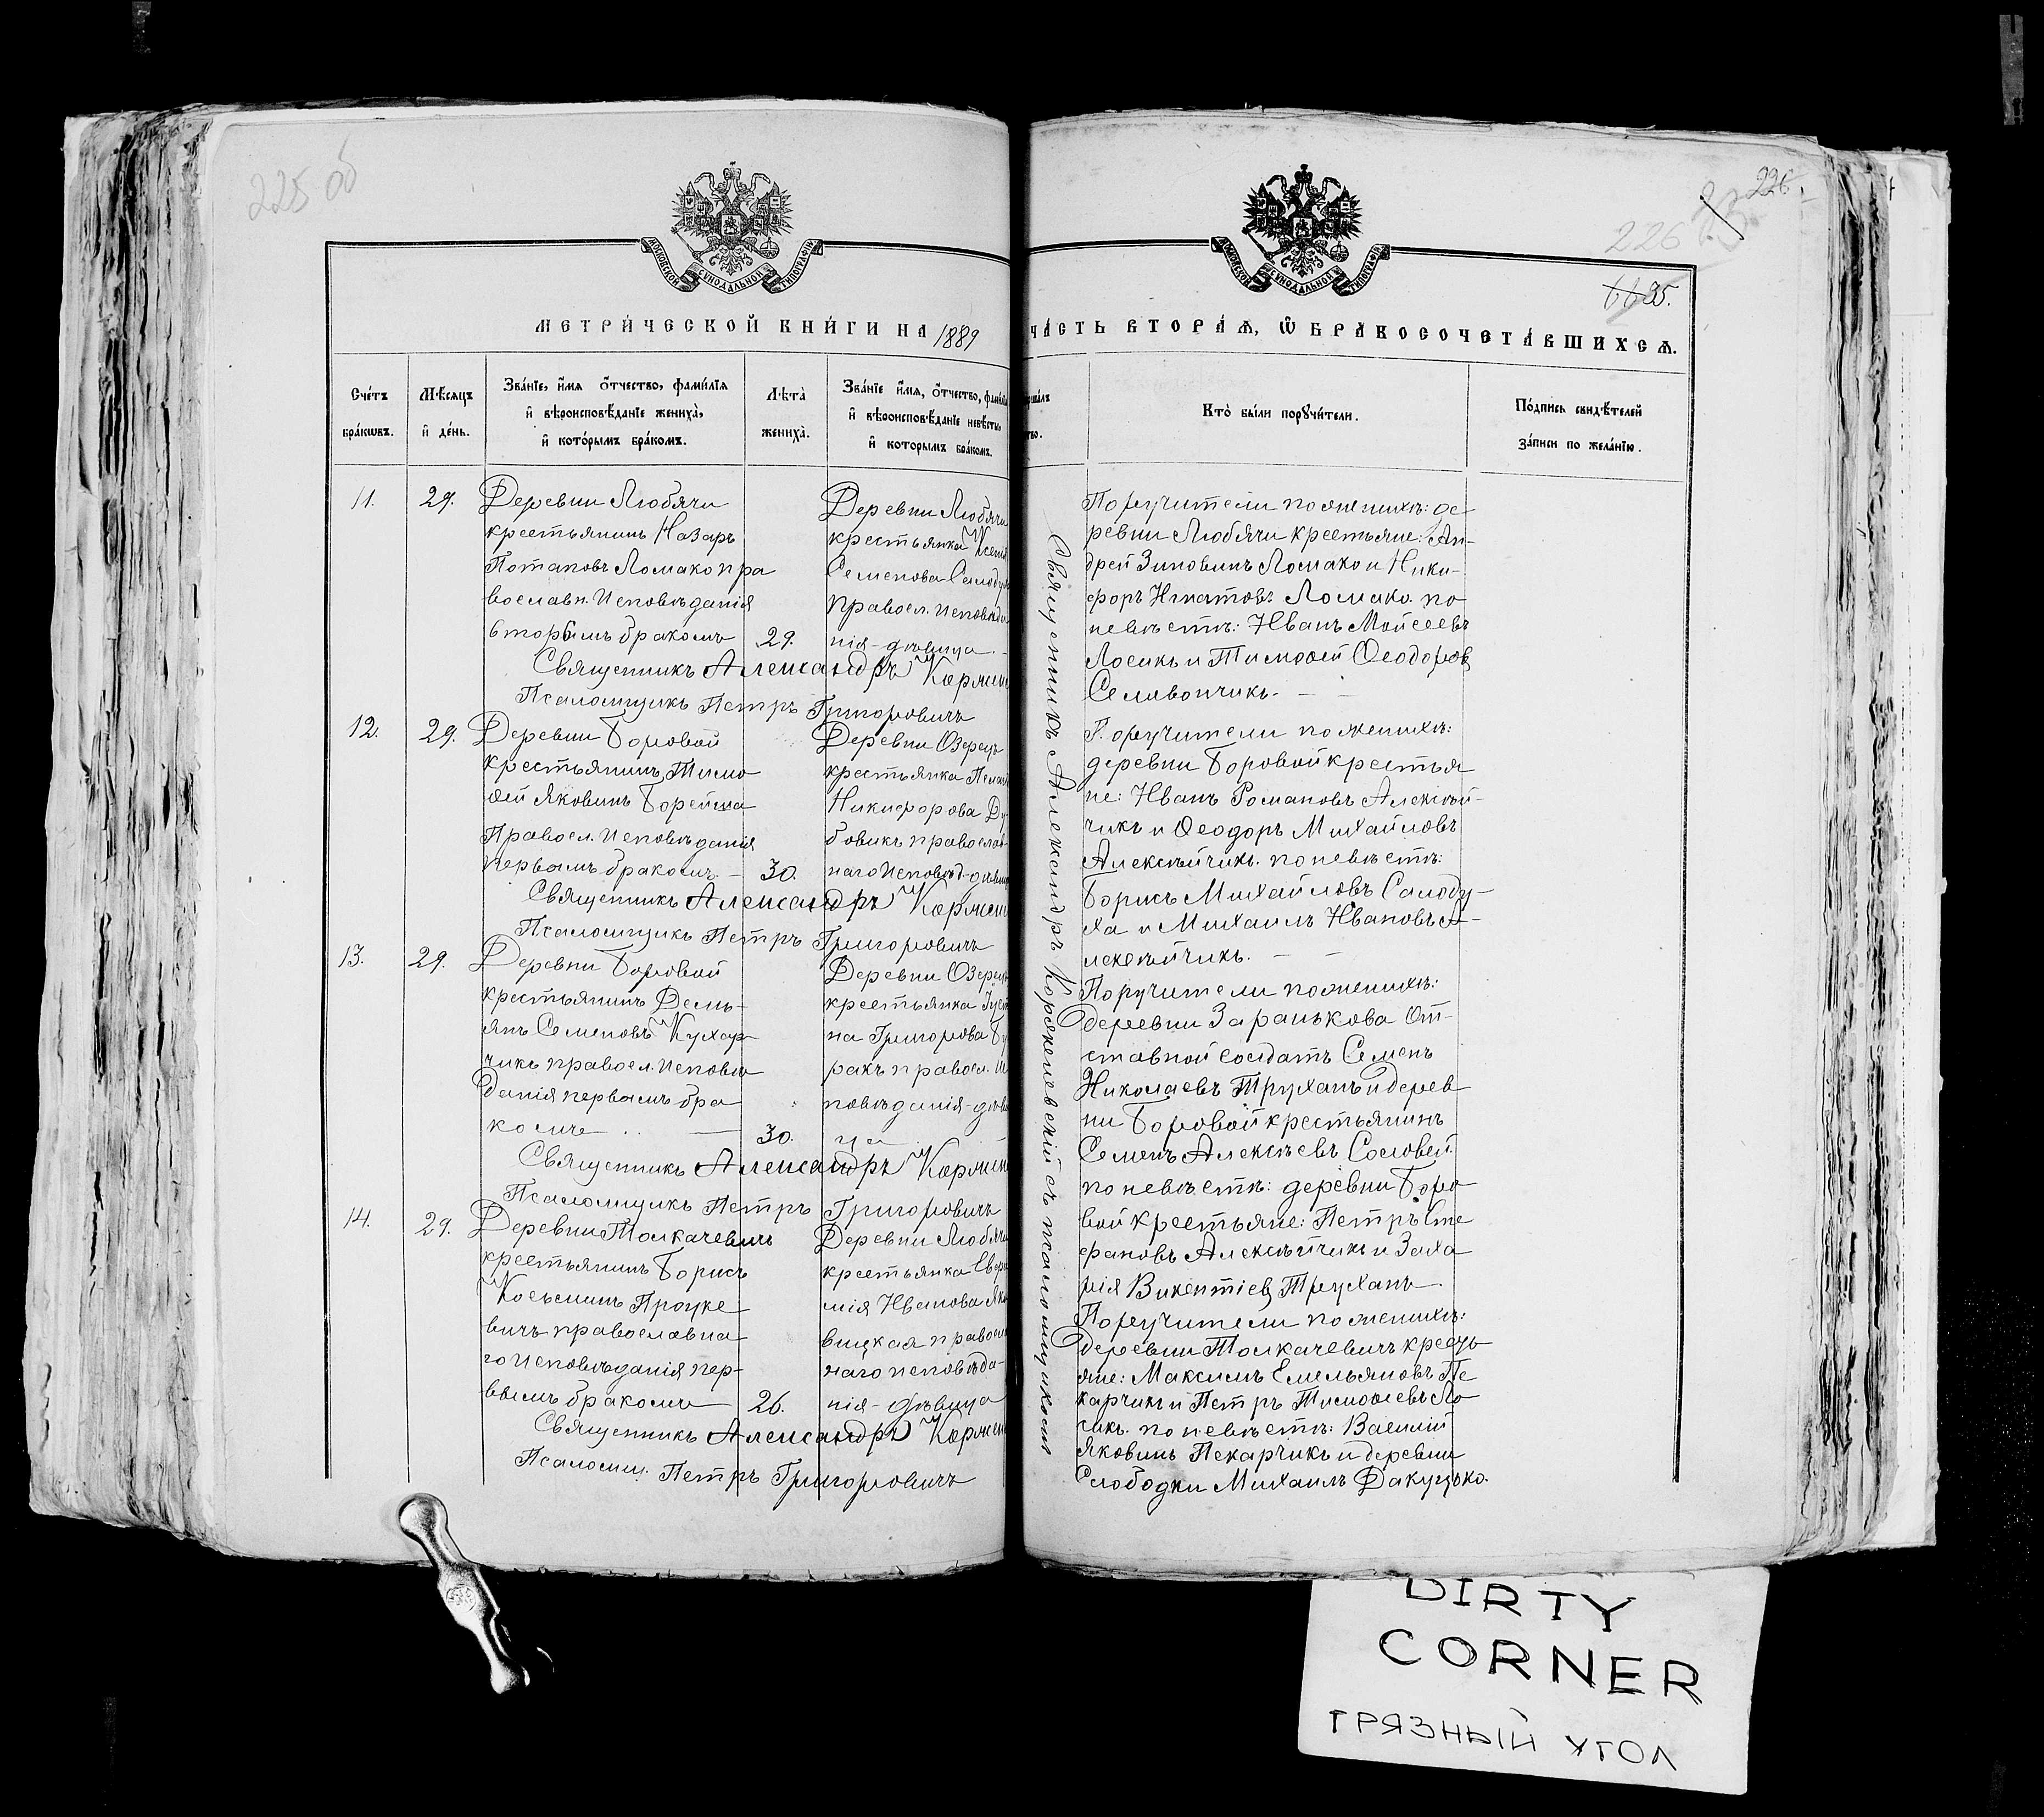 225 об
МОСКОВСКОЙ СѴНОДАЛЬНОЙ ТИПОГРАФІИ
МЕТРИ́ЧЕСКОЙ КНИ́ГИ НА 1889
Сче́тъ бра́кѡвъ.
Мѣ́сяцъ и҆ де́нь.
Зва́нїе, и҆́мя ѻ҆́тчество, фами́лїя
и҆ вѣроисповѣ́данїе жениха̀,
и҆ кото́рымъ бра́комъ.
Лѣ́та жениха̀.
Зва́нїе и҆́мя, ѻ҆́тчество, фами́лїя
и҆ вѣроисповѣ́данїе невѣ́сты,
и҆ которымъ бра́комъ.
11. 29. Деревни Любячи
крестьянинъ Назаръ
Потаповъ Ломако пра
вославн. исповѣданія
вторымъ бракомъ 29.
Деревни Любячи
крестьянка
Семенова
правосл.
нія - дѣвица
Священникъ Александръ
Псаломщикъ Петръ Григоровичъ
12. 29. Деревни Боровой
крестьянинъ Тимо
ѳей Яковинъ Борейша
Правосл. исповѣданія
первымъ бракомъ - 30.
Деревни Озерецъ
крестьянка
Никифорова Ду
бовикъ православ
наго исповѣд-
Священникъ Александръ
Псаломщикъ Петръ Григоровичъ
13. 29. Деревни Боровой
крестьянинъ Демь-
янъ Семеновъ Кухар
чикъ правосл. исповѣ
данія первымъ бра
комъ 30.
Деревни
крестьянка
на Григорова
ракъ правосл. И
повѣданія-
ца
Священникъ Александръ
Псаломщикъ Петръ Григоровичъ
14. 29. Деревни Толкачевичъ
крестьянинъ Борисъ
Косьминъ Процке
вичъ православна
го исповѣданія пер-
вымъ бракомъ 26.
Деревни Любячи
крестьянка
мія Иванова
вицкая
наго исповѣда-
нія - дѣвица
Священникъ Александръ
Псаломщ. Петръ Григоровичъ
226.
226
95.
МОСКОВСКОЙ СѴНОДАЛЬНОЙ ТИПОГРАФІИ
ЧА́СТЬ ВТОРА́Ѧ, Ѡ҆ БРАКОСОЧЕТА́ВШИХСѦ.
Кто̀ бы́ли порꙋчи́тели.
По́дпись свидѣ́телей
за́писи по жела́нїю.
Священникъ Александръ Корженевскій съ псаломщикомъ
Поручители по женихѣ: де
ревни Любячи крестьяне: Ан-
дрей Зиновинъ Ломако и Ники-
форъ Игнатовъ Ломако. по
невѣстѣ: Иванъ Мойсеевъ
Лосикъ и Тимоѳей Ѳеодоровъ
Селивончикъ.
Поручители по женихѣ:
деревни Боровой крестья
не: Иванъ Романовъ Алексѣй-
чикъ и Ѳеодоръ Михайловъ
Алексѣйчикъ. по невѣстѣ:
Борисъ Михайловъ Салоду-
ха и Михаилъ Ивановъ А-
лексѣйчикъ.
Поручители по женихѣ:
деревни Заранькова От-
ставной солдатъ Семенъ
Николаевъ Труханъ и дерев
ни Боровой крестьянинъ
Семенъ Алексѣевъ Соловей.
по невѣстѣ: деревни Боро
вой крестьяне: Петръ Сте
фановъ Алексѣйчикъ и Заха
рія Викентіевъ Труханъ
Поручители по женихѣ:
деревни Толкачевичъ кресть
яне: Максимъ Емельяновъ Пе
карчикъ и Петръ Тимоѳеевъ Ло
сикъ. по невѣстѣ: Василій
Яковинъ Пекарчикъ и деревни
Слободки Михаилъ Дакуцько.
DIRTY
CORNER
ГРЯЗНЫЙ УГОЛ